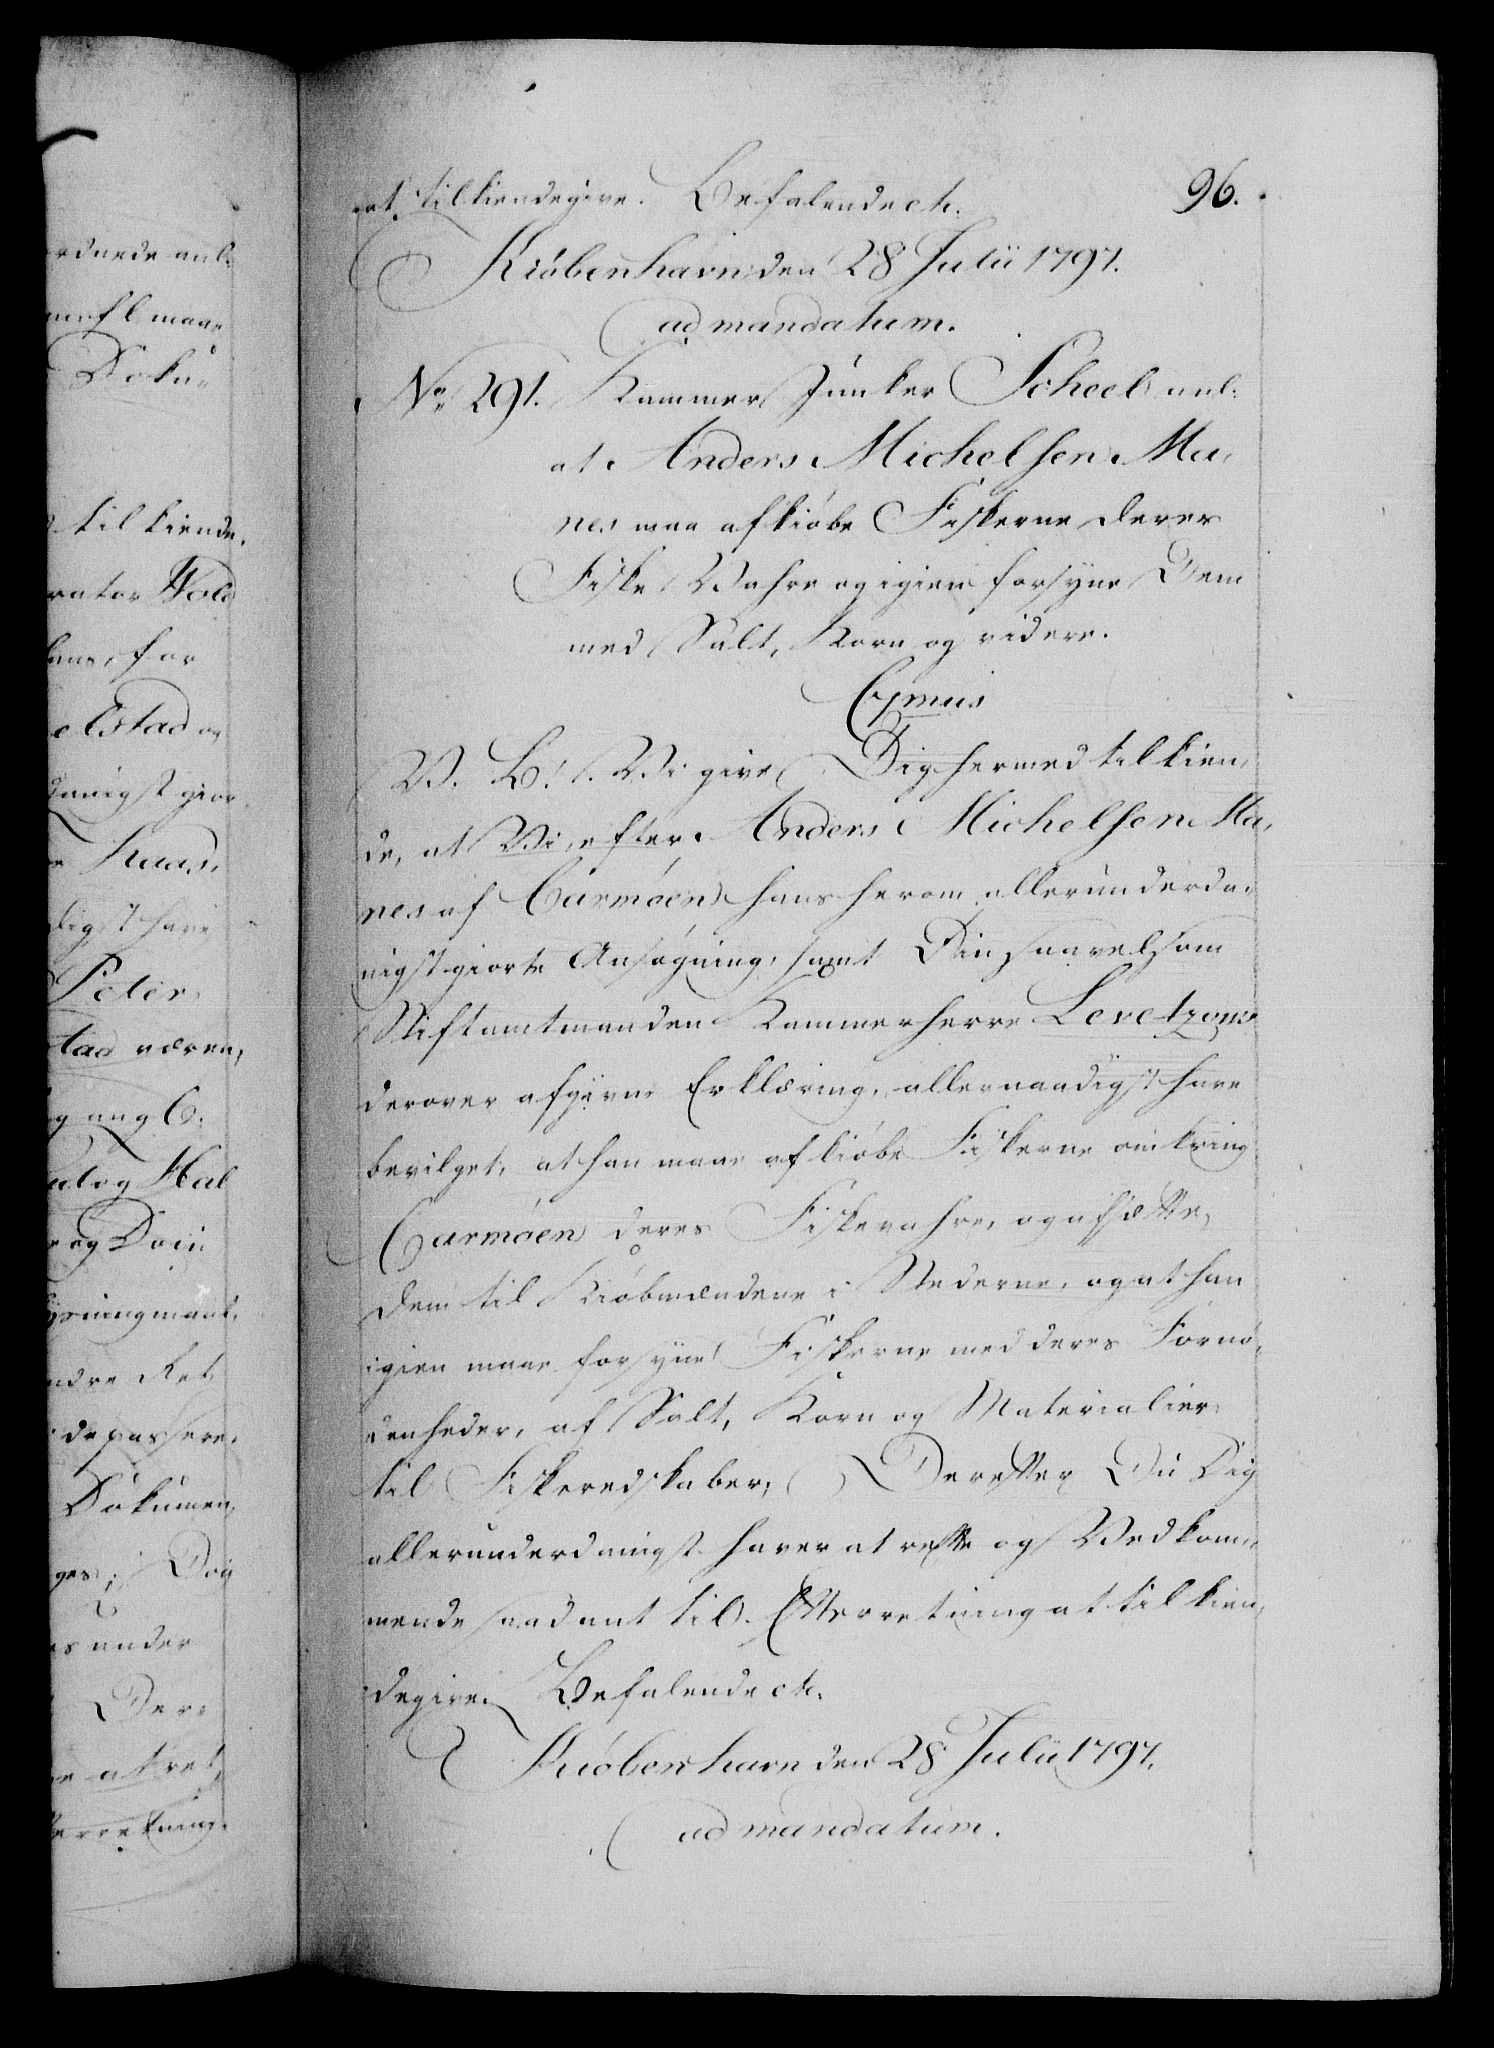 96.
at tilkiendegive. Befalende etc.
Kiöbenhavn den 28 Julii 1797.
ad mandatum.
No 291. Kammer Junker Scheel anl:
at Anders Michelsen Ma,
nes maa afkiöbe Fiskerne deres
Fiske Vahre og igien forsyne Dem
med Salt, Korn og videre.
C7mus
V. B.! Vi give Dig hermed tilkien,
de, at Vi, efter Anders Michelsen Ma,
nes af Carmöen hans herom allerunderda,
nigst giorte Ansögning, samt Din saavelsom
Stiftamtmanden Kammerherre Levetzows
derover afgivne Erklæring, allernaadigst have
bevilget, at han maae afkiöbe Fiskerne omkring
Carmöen deres Fiskevahre, og afsætte
dem til Kiöbmændene i Stæderne, og at han
igien maae forsyne Fiskerne med deres Fornö,
denheder, af Salt, Korn og Materialier
til Fiskeredskaber; Derefter Du Dig
allerunderdanigst haver at rette og Vedkom,
mende saadant til Efterretning at tilkien,
degive. Befalende etc.
Kiöbenhavn den 28 Julii 1797.
ad mandatum.